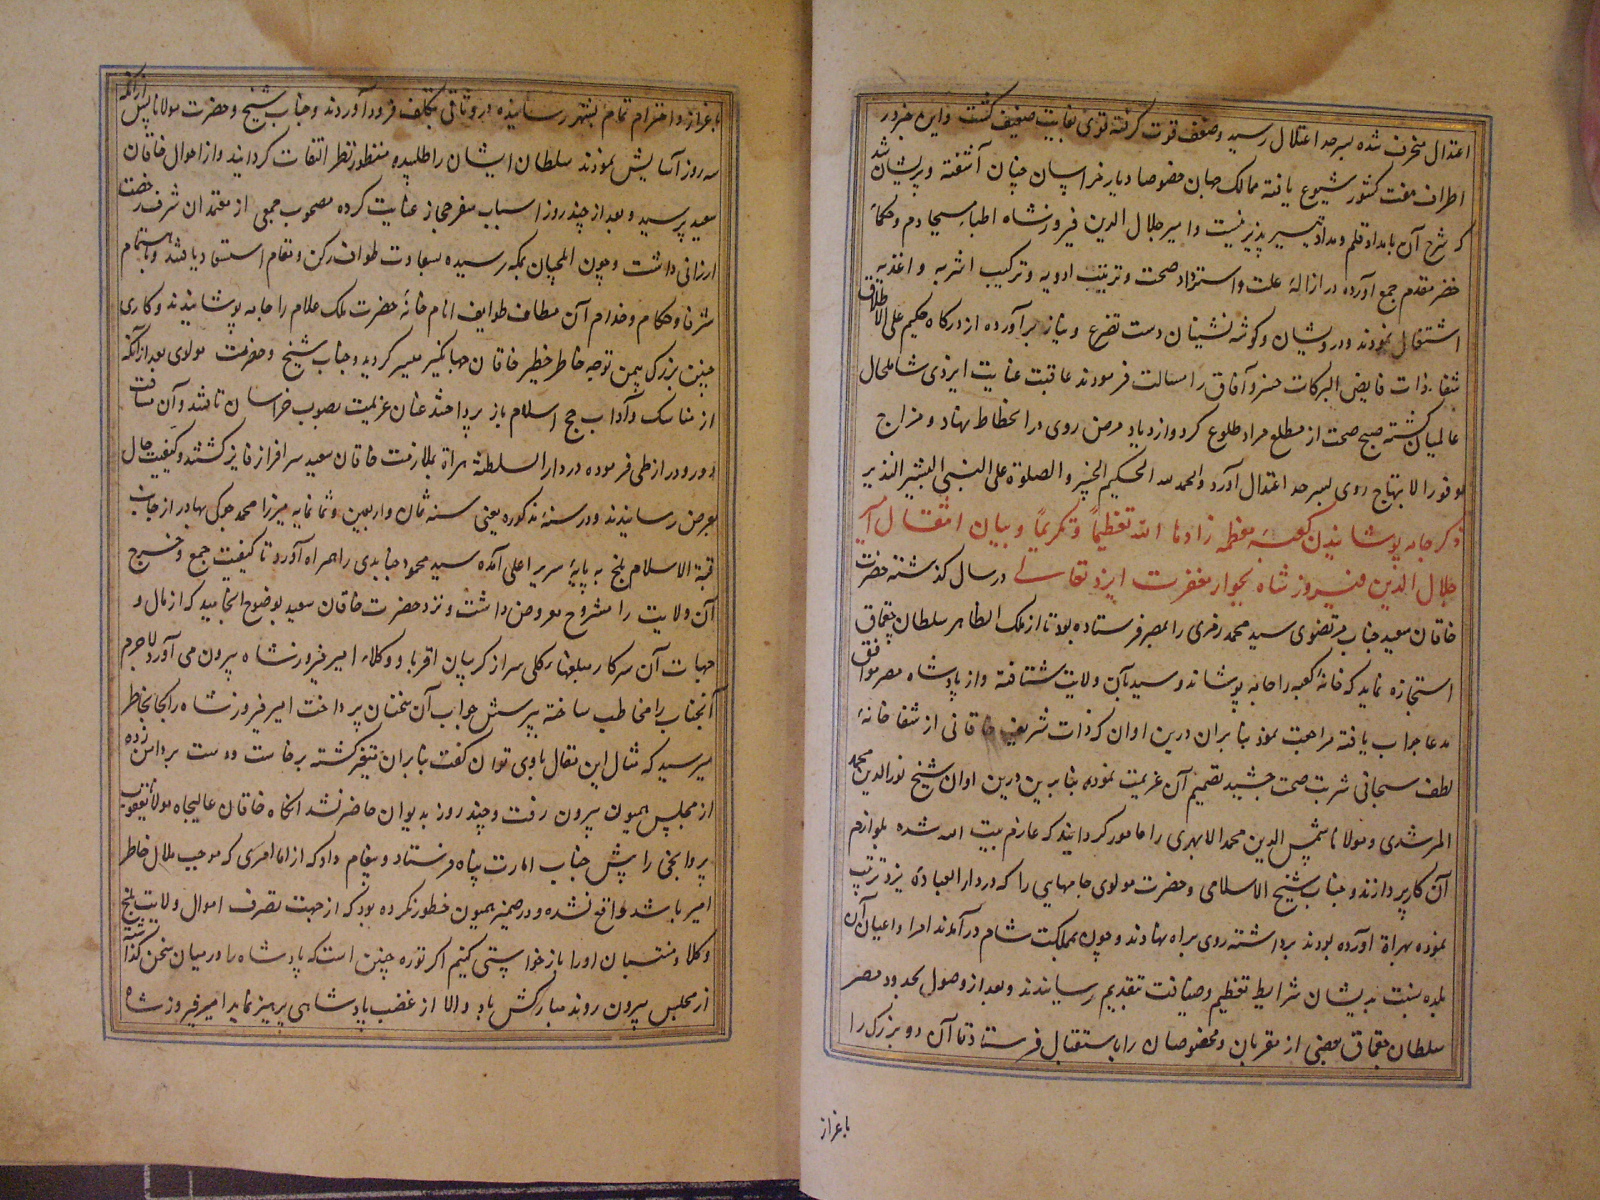 اعتدال منحرف شده بسرحد اعتلال رسید وضعف قوت گرفته قوی بغایت ضعیف گشت واین خبر در
اطراف هفت کشور شیوع یافته ممالک جهان خصوصا دیار خراسان چنان آشفته وپریشان شد
که شرح آن بامداد قلم ومداد تیسیر پذیر نیست وامیر جلال الدین فیروزشاه اطباء مسیحا دم وحکماء
خضر مقدم جمع آورده در ازالهٔ علت واسترداد صحت وترتیب ادویه وترکیب اشربه و اغذیه
اشتغال نمودند ودرویشان وگوشه نشینان دست تضرع ونیاز برآورده از درگاه حکیم علی الاطلاق
شفاء ذات فایض البرکات خسرو آفاق را مسالت فرمودند عاقبت عنایت ایزدی شامل حال
عالمیان گشته صبح صحت از مطلع مراد طلوع کرد وازدیاد مرض روی در انحطاط نهاد و مزاج
موفور الابتهاج روی بسرحد اعتدال آورد والحمد لله الحکیم الخبیر والصلوة علی النبی البشیر النذیر
ذکر جامه پوشانیدن کعبهٔ معظمه زادها الله تعظیماً وتکریماً و بیان انتقال امیر
جلال الدین فیروز شاه بجوار مغفرت ایزد تعالی در سال گذشته حضرت
خاقان سعید جناب مرتضوی سید محمد زمزی را بمصر فرستاده بود تا از ملک الظاهر سلطان چقماق
استجازه نماید که خانهٔ کعبه را جامه پوشاند وسید آن ولایت شتافته واز پادشاه مصر موافق
مدعا جواب یافته مراجعت نمود بنابران درین اوان که ذات شریف خاقانی از شفا خانهٔ
لطف سبحانی شربت صحت چشید تصمیم آن عزیمت نموده بنابرین درین اوان شیخ نورالدین محمد
المرشدی ومولانا شمس الدین محمد الابهری را مامور گردانیدند که عازم بیت الله شده بلوازم
آن کار پردازند وجناب شیخ الاسلامی وحضرت مولوی جامهایی را که در دار العبادهٔ یزد ترتیب
نموده بهراة آورده بودند برداشته روی براه نهادند وچون بمملکت شام در آمدند امرا واعیان آن
بلده نسبت بدیشان شرایط تعظیم وضیافت بتقدیم رسانیدند وبعد از وصول بحدود مصر
سلطان چقماق بعضی از مقربان ومخصوصان را باستقبال فرستاد تا آن دو بزرگ را
باعزاز
باعزاز واحترام تمام بشهر رسانیده در وثاقی بتکلف فرود آوردند وجناب شیخ وحضرت مولانا پس ازانکه
سه روز آسایش نمودند سلطان ایشان را طلبیده منظور نظر التفات گردانید واز احوال خاقان
سعید پرسید وبعد از چند روز اسباب سفر حجاز عنایت کرده مصحوب جمعی از معتمدان شرف رخصت
ارزانی داشت وچون ایلچیان بمکه رسیده بسعادت طواف رکن ومقام استسعاد یافتند وباهتمام
شرفا وحکام وخدام آن مطاف طوایف انام خانهٔ حضرت ملک علام را جامه پوشانیدند وکاری
چنین بزرگ بیمن توجه خاطر خطیر خاقان جهانگیر میسر گردید وجناب شیخ وحضرت مولوی بعد ازآنکه
از مناسک وآداب حج اسلام باز پرداختند عنان عزیمت بصوب خراسان تافتند وآن مسافت
دور ودراز طی فرموده در دار السلطنهٔ هراة بملازمت خاقان سعید سرافراز فایز گشتند وکیفیت حال
بعرض رسانیدند ودر سنهٔ مذکوره یعنی سنه ثمان واربعین وثمانمایه میرزا محمد جوکی بهادر از جانب
قبة الاسلام بلخ به پایهٔ سریر اعلی آمده سید محمود جنابدی را همراه آورد تا کیفیت جمع وخرج
آن ولایت را مشروح معروض داشت ونزد حضرت خاقان سعید بوضوح انجامید که از مال و
جهات آن سرکار مبلغهاء کلی سر از گریبان اقربا و وکلاء امیر فیروزشاه بیرون می آورد لاجرم
آنجناب را مخاطب ساخته بپرسش جواب آن سخنان پرداخت امیر فیروزشاه را کجا بخاطر
میرسید که مثال این مقال باوی توان گفت بنابران متغیر گشته برخاست ودست بر دامن زده
از مجلس همیون بیرون رفت وچند روز بدیوان حاضر نشد آنگاه خاقان عالیجاه مولانا یعقوب
پروانجی را پیش جناب امارت پناه فرستاد وپیغام داد که از اما امری که موجب ملال خاطر
امیر باشد واقع نشده ودر ضمیر همیون خطور نکرده بود که از جهت تصرف اموال ولایت بلخ
وکلا ومنتسبان اورا بازخواستی کنیم اگر توره چنین است که پادشاه را در میان سخن گذاشته
از مجلس بیرون روند مبارکش باد والا از غضب پادشاهی پرهیز نماید امیر فیروز شاه